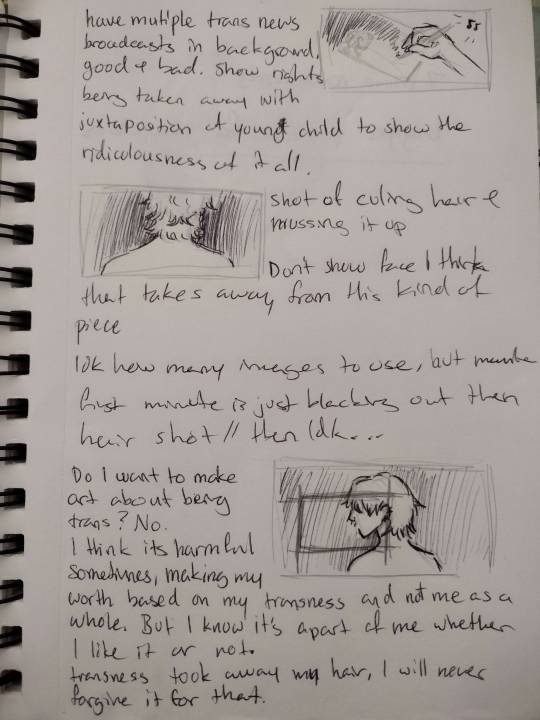 have mutiple trans news
broadcasts in background.
good & bad. Show rights
being taken away with
juxtaposition of young child to show the
ridiculousness of it all.
shot of culing hair &
mussing it up
Dont show face I think
that takes away from this kind of
piece
Idk how many images to use, but maybe
first minute is just blacking out then
hair shot // then Idk...
Do I want to make
art about being
trans? No.
I think its harmful
sometimes, making my
worth based on my transness and not me as a
whole. But I know it's apart of me whether
I like it or not.
transness took away my hair, I will never
forgive it for that.